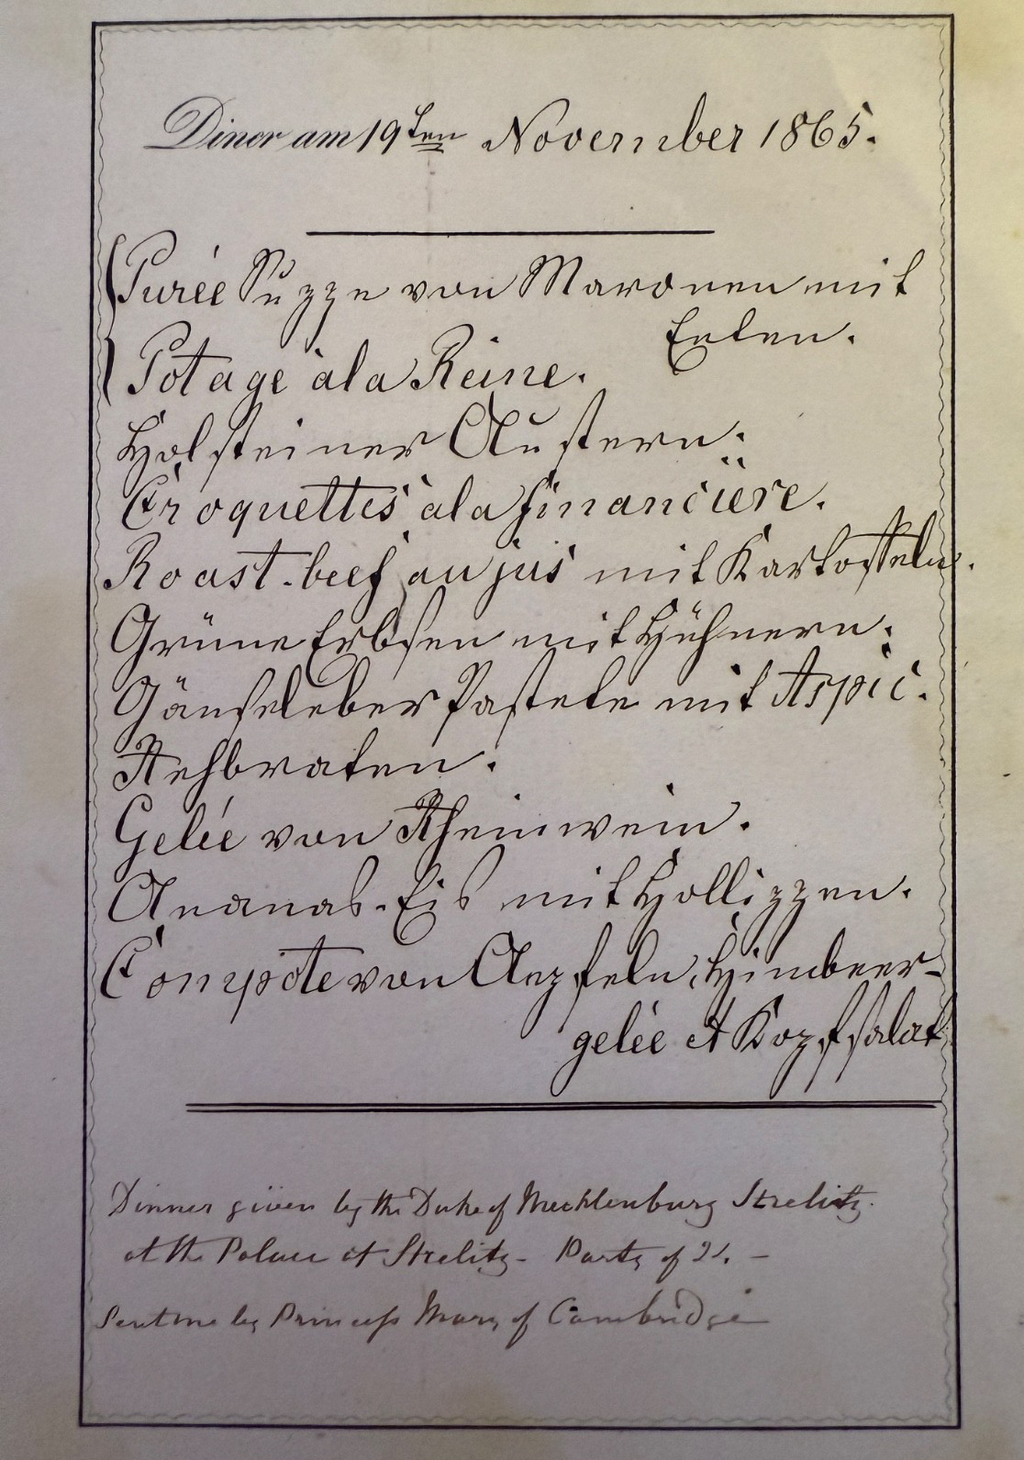 Diner am 19ten November 1865.
Purée Suppe von Maronen mit
Enten.
Potage à la Reine.
Holsteiner Austern.
Croquettes à la financière.
Roast-beef au jus mit Kartoffeln.
Grüne Erbsen mit Hühnern.
Gänseleber Pastete mit Aspic.
Rehbraten.
Gelée von Rheinwein.
Ananas-Eis mit Hollippen.
Compote von Aepfeln, Himbeer-
gelée et Kopfsalat
Dinner given by the Duke of Mecklenburg Strelitz.
at the Palace at Strelitz - Party of 21. -
Sent me by Princess Mary of Cambridge